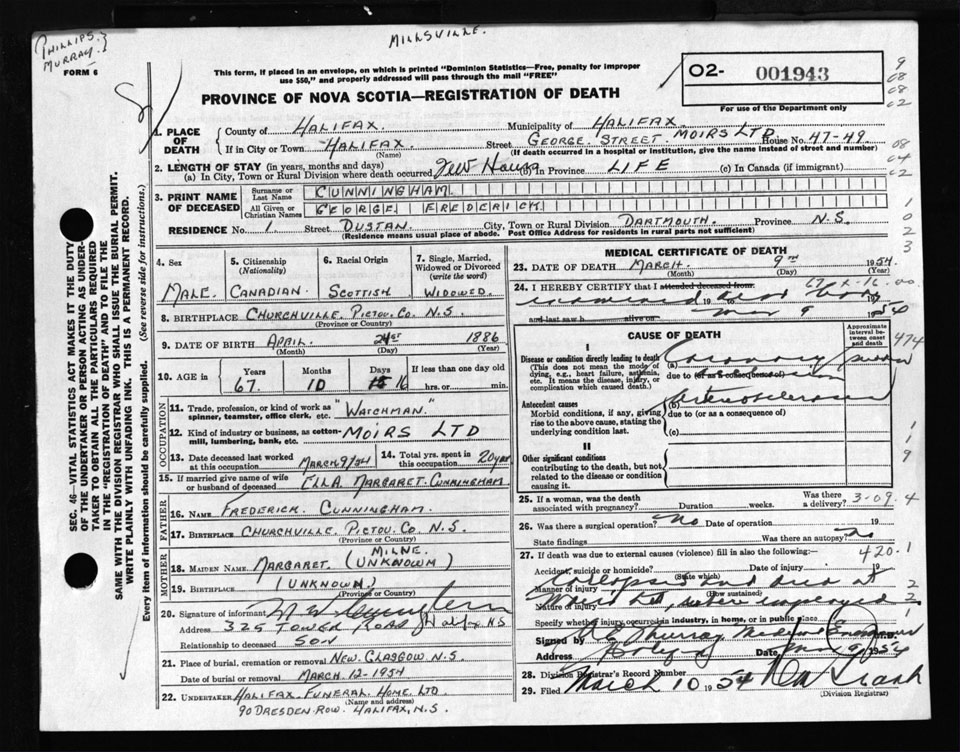 PHILLIPS.
MURRAY.
MILLSVILLE.
FORM 6
This form, if placed in an envelope, on which is printed "Dominion Statistics—Free, penalty for improper
use $50," and properly addressed will pass through the mail "FREE"
PROVINCE OF NOVA SCOTIA—REGISTRATION OF DEATH
O2- 001943
For use of the Department only
1. PLACE OF DEATH
County of HALIFAX. Municipality of HALIFAX
If in City or Town HALIFAX. Street GEORGE STREET. MOIRS LTD House No. 47-49
(Name) (If death occurred in a hospital or institution, give the name instead of street and number)
2. LENGTH OF STAY (in years, months and days)
(a) In City, Town or Rural Division where death occurred Few Hours (b) In Province LIFE (c) In Canada (if immigrant)
3. PRINT NAME OF DECEASED
Surname or Last Name CUNNINGHAM
All Given or Christian Names GEORGE FREDERICK
RESIDENCE No. 1 Street DUSTAN. City, Town or Rural Division DARTMOUTH. Province N.S.
(Residence means usual place of abode. Post Office Address for residents in rural parts not sufficient)
4. Sex MALE.
5. Citizenship (Nationality) CANADIAN.
6. Racial Origin SCOTTISH
7. Single, Married, Widowed or Divorced (write the word) WIDOWED.
8. BIRTHPLACE CHURCHVILLE. PICTOU. CO. N.S.
(Province or Country)
9. DATE OF BIRTH APRIL. 21st 1886
(Month) (Day) (Year)
10. AGE in Years 67. Months 10 Days 16 If less than one day old hrs. or min.
OCCUPATION
11. Trade, profession, or kind of work as spinner, teamster, office clerk, etc. "WATCHMAN."
12. Kind of industry or business, as cotton-mill, lumbering, bank, etc. MOIRS LTD
13. Date deceased last worked at this occupation MARCH 9/54
14. Total yrs. spent in this occupation 20 yrs
15. If married give name of wife or husband of deceased ELLA MARGARET. CUNNINGHAM
FATHER
16. NAME FREDERICK CUNNINGHAM.
17. BIRTHPLACE CHURCHVILLE. PICTOU. CO. N.S.
(Province or Country)
MOTHER
18. MAIDEN NAME MARGARET MILNE. (UNKNOWN)
19. BIRTHPLACE (UNKNOWN)
(Province or Country)
20. Signature of informant
Address 325 TOWER ROAD Halifax NS
Relationship to deceased SON
21. Place of burial, cremation or removal NEW. GLASGOW N.S.
Date of burial or removal MARCH-12-1954
22. UNDERTAKER HALIFAX FUNERAL HOME. LTD
(Name and address)
90 DRESDEN ROW. HALIFAX, N.S.
MEDICAL CERTIFICATE OF DEATH
23. DATE OF DEATH MARCH. 9TH 1954.
(Month) (Day) (Year)
24. I HEREBY CERTIFY that I attended deceased from: 67-10-16
examined dead body 19
and last saw h alive on Mar 9 1954
CAUSE OF DEATH
Approximate interval between onset and death
I
Disease or condition directly leading to death
(This does not mean the mode of dying, e.g., heart failure, asthenia, etc. It means the disease, injury, or complication which caused death.)
(a) Coronary sudden
due to (or as a consequence of)
Antecedent causes
Morbid conditions, if any, giving rise to the above cause, stating the underlying condition last.
(b) arteriosclerosis
due to (or as a consequence of)
(c)
II
Other significant conditions
contributing to the death, but not related to the disease or condition causing it.
25. If a woman, was the death associated with pregnancy? Duration weeks. Was there a delivery? 3-09.4
26. Was there a surgical operation? no Date of operation 19
State findings Was there an autopsy? no
27. If death was due to external causes (violence) fill in also the following:— 420.1
Accident, suicide or homicide? Date of injury 19
(State which)
Manner of injury Collapsed and died at
(How sustained)
Nature of injury Moirs Ltd, where employed
Specify whether injury occurred in industry, in home, or in public place
Signed by Murray Medical Examiner
Address Date, Mar 9 1954
28. Division Registrar's Record Number
29. Filed March 10 1954
(Division Registrar)
SEC. 46—VITAL STATISTICS ACT MAKES IT THE DUTY
OF THE UNDERTAKER OR PERSON ACTING AS UNDER-
TAKER TO OBTAIN ALL THE PARTICULARS REQUIRED
IN THE "REGISTRATION OF DEATH" AND TO FILE THE
SAME WITH THE DIVISION REGISTRAR WHO SHALL ISSUE THE BURIAL PERMIT.
WRITE PLAINLY WITH UNFADING INK. THIS IS A PERMANENT RECORD.
Every item of information should be carefully supplied. (See reverse side for instructions.)